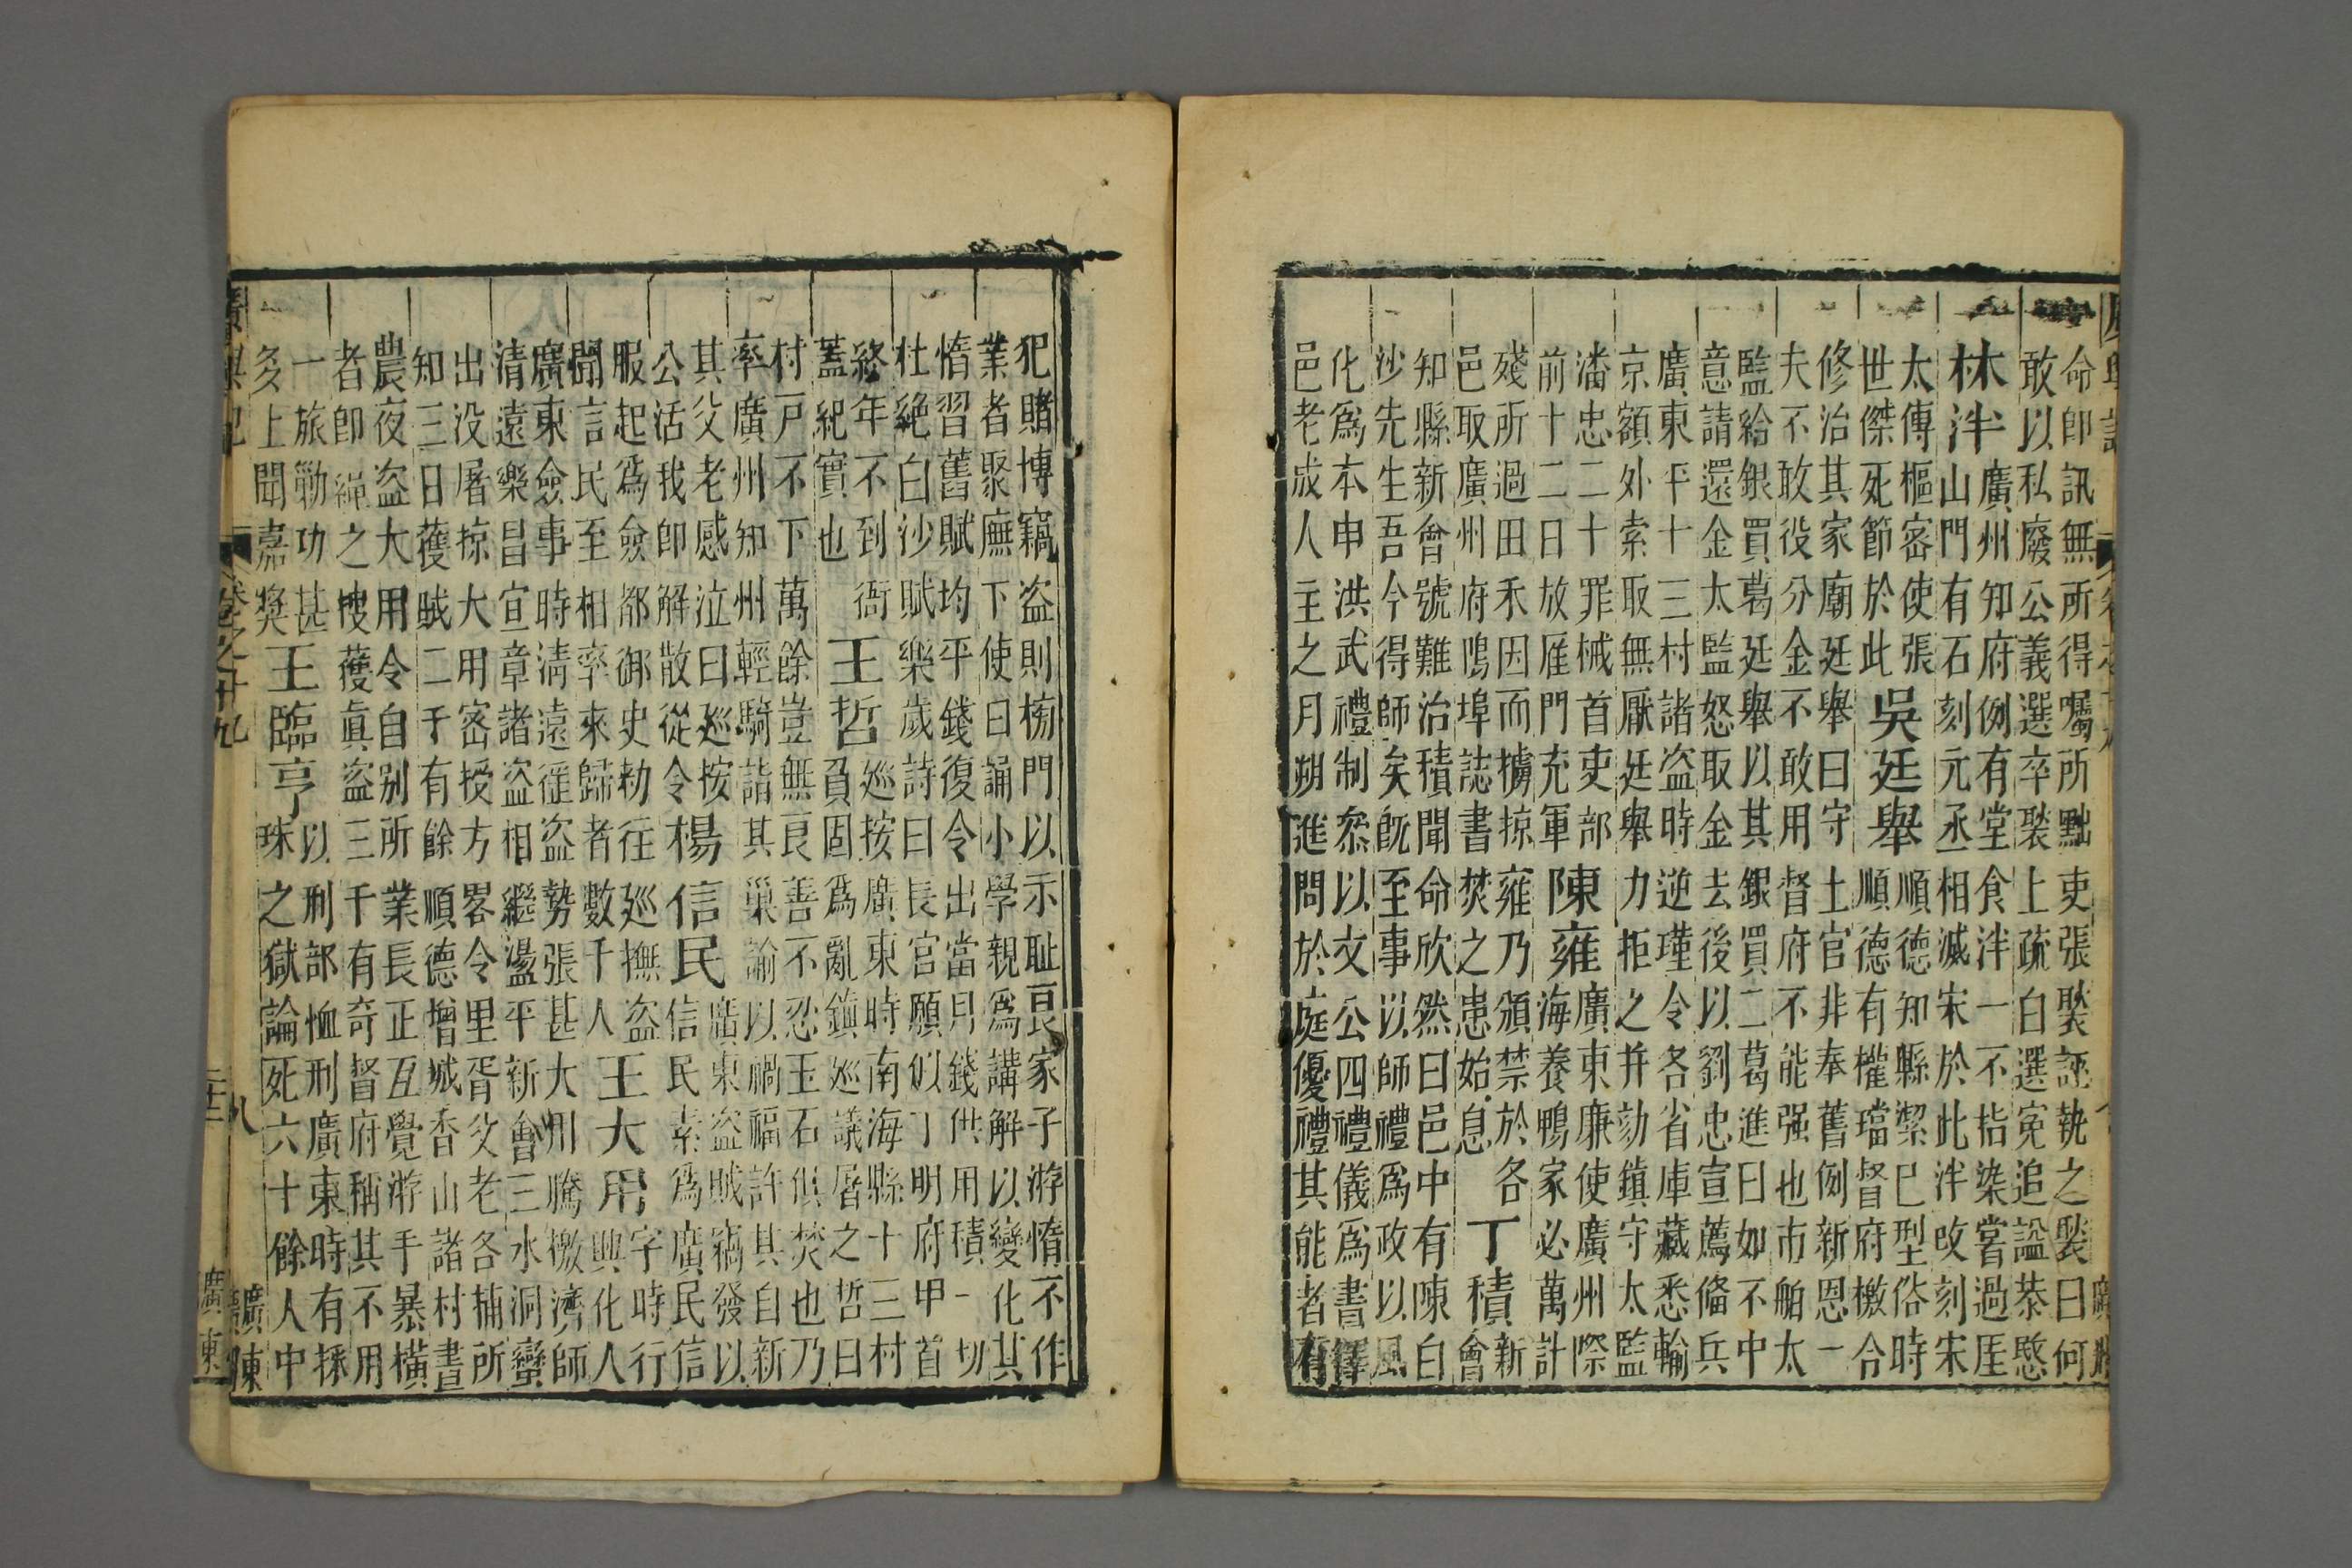 命即訊無所得囑所黜吏張褧誣執之褧曰何
敢以私廢公義選卒褧上疏白選寃追謚恭愍
林泮
廣州知府例有堂食泮一不染嘗過厓
山門有石刻元丞相滅宋於此泮改刻宋
太傅樞密使張
世傑死節於此
吳廷舉
順德知縣潔巳型俗時
順德有權璫督府檄合
修治其家廟廷舉曰守土官非奉舊例新恩一
夫不敢役分金不敢用督府不能强也市舶太
監給銀買葛廷舉以其銀買二葛進曰如不中
意請還金太監怒取金去後以劉忠宣薦僃兵
廣東平十三村諸盗時逆瑾令各省庫藏悉輸
京額外索取無厭廷舉力拒之并劾鎮守太監
潘忠二十罪械首吏部
前十二日放雁門充軍
陳雍
廣東廉使廣州際
海養鴨家必萬計
殘所過田禾因而擄掠雍乃頒禁於各
邑取廣州府鳴埠誌書焚之患始息
丁積
新
會
知縣新會號難治積聞命欣然曰邑中有陳白
沙先生吾今得師矣旣至事以師禮爲政以風
化爲本申洪武禮制叅以文公四禮儀爲書鐸
邑老成人主之月朔進問於庭優禮其能者有
廣輿記
卷之十九
廣東
犯賭博竊盗則榜門以示耻良家子游惰不作
業者聚廡下使日誦小學親爲講解以變化其
惰習舊賦均平錢復令出當月錢供用積一切
杜絶白沙賦樂歲詩曰長官願似丁明府甲首
終年不到衙
蓋紀實也
王哲
巡按廣東時南海縣十三村
負固爲亂鎮巡議屠之哲曰
村戸不下萬餘豈無良善不忍玉石俱焚也乃
率廣州知州輕騎詣其巢諭以禍福許其自新
其父老感泣曰巡按
公活我即解散從令
楊信民
廣東盗賊竊發以
信民素爲廣民信
服起爲僉都御史勑往廵撫盗
聞言民至相率來歸者數千人
王大用
字時行
興化人
廣東僉事時清遠徭盗勢張甚大用騰檄濟師
清遠樂昌宜章諸盗相繼盪平新會三水洞蠻
出没屠掠大用密授方畧令里胥父老各捕所
知三日獲賊二千有餘順德增城香山諸村晝
農夜盗大用令自别所業長正互覺游手暴橫
者即繩之獲真盗三千有奇督府稱其不用
一旅勦功甚
多上聞嘉奬
王臨亨
以刑部恤刑廣東時有採
珠之獄論死六十餘人中
廣輿記
卷之十九
廣東